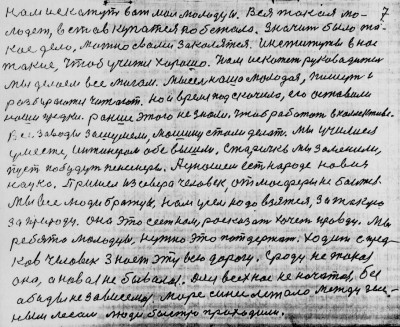 7
нам искажут вот мая молодуш. Вся такая мо-
лодеж, встав купатся побежала. Значит было та-
кое дело, можно с вами, закалятся. Институты в нас
такие, чтоб учили хорошо. Нам искажут руководители
мы делаем все мигам. Мысел наша молодая, пишут и
розбираюти читают. но время подскочило, его оставили
наши предки. ранше этого не знали, чтоб работат в колективе.
Все заводы запустим, машину стали делат. Мы училися
уместе, инжинерам обе вышли. Старичкы мы заменили,
пуст побудут пенсионеры. А у нашем ест народе новая
наука. Пришел из севера человек, отмосферы не боится.
Мы все люди братья, нам усем надо взятся, за такую
за природу. Она это сееткам, росказат хочет правду. Мы
ребята молодыи, нужно это потдержат. Ходит с пред-
ков человек знает эту всю дорогу. Сроду не такая
она, а новая не бывалая. Для всех нас не начатая, без
абиды не зависемая. море сине летало между зеле-
ным лесам люди быстро проходили.